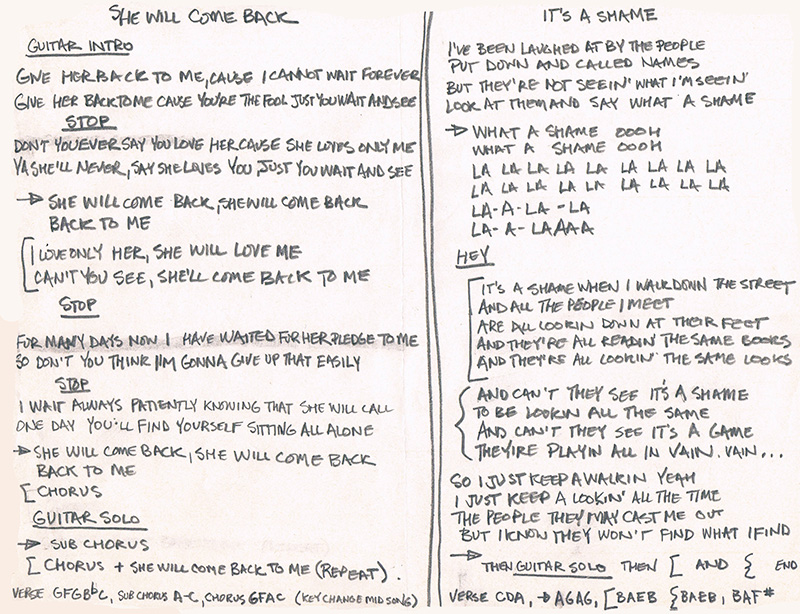 SHE WILL COME BACK
GUITAR INTRO
GIVE HER BACK TO ME, CAUSE I CANNOT WAIT FOREVER
GIVE HER BACK TO ME CAUSE YOU'RE THE FOOL JUST YOU WAIT AND SEE
STOP
DON'T YOU EVER SAY YOU LOVE HER CAUSE SHE LOVES ONLY ME
YA SHE'LL NEVER, SAY SHE LOVES YOU, JUST YOU WAIT AND SEE
→ SHE WILL COME BACK, SHE WILL COME BACK
BACK TO ME
[ I LOVE ONLY HER, SHE WILL LOVE ME
CAN'T YOU SEE, SHE'LL COME BACK TO ME
STOP
FOR MANY DAYS NOW I HAVE WAITED FOR HER PLEDGE TO ME
SO DON'T YOU THINK I'M GONNA GIVE UP THAT EASILY
STOP
I WAIT ALWAYS PATIENTLY KNOWING THAT SHE WILL CALL
ONE DAY YOU'LL FIND YOURSELF SITTING ALL ALONE
→ SHE WILL COME BACK, SHE WILL COME BACK
BACK TO ME
[ CHORUS
GUITAR SOLO
→ SUB CHORUS
[ CHORUS + SHE WILL COME BACK TO ME (REPEAT).
VERSE GFGBbC, SUB CHORUS A-C, CHORUS GFAC (KEY CHANGE MID SONG)
IT'S A SHAME
I'VE BEEN LAUGHED AT BY THE PEOPLE
PUT DOWN AND CALLED NAMES
BUT THEY'RE NOT SEEIN' WHAT I'M SEEIN'
LOOK AT THEM AND SAY WHAT A SHAME
→ WHAT A SHAME OOOH
WHAT A SHAME OOOH
LA LA LA LA LA LA LA LA LA
LA LA LA LA LA LA LA LA LA
LA-A-LA-LA
LA-A-LAAAA
HEY
[ IT'S A SHAME WHEN I WALK DOWN THE STREET
AND ALL THE PEOPLE I MEET
ARE ALL LOOKIN DOWN AT THEIR FEET
AND THEY'RE ALL READIN' THE SAME BOOKS
AND THEY'RE ALL LOOKIN' THE SAME LOOKS
{ AND CAN'T THEY SEE IT'S A SHAME
TO BE LOOKIN ALL THE SAME
AND CAN'T THEY SEE IT'S A GAME
THEY'RE PLAYIN ALL IN VAIN. VAIN...
SO I JUST KEEP A WALKIN YEAH
I JUST KEEP A LOOKIN' ALL THE TIME
THE PEOPLE THEY MAY CAST ME OUT
BUT I KNOW THEY WON'T FIND WHAT I FIND
→ THEN GUITAR SOLO THEN [ AND { END
VERSE CDA, → AGAG, [ BAEB { BAEB, BAF#